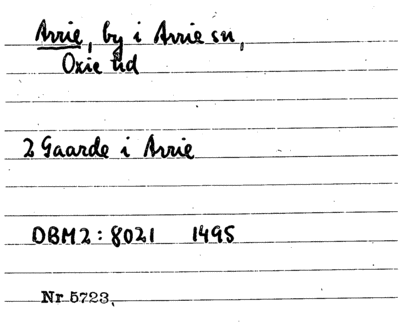 Arrie, by i Arrie sn,
Oxie hd
2 Gaarde i Arrie
DBM2: 8021 1495
Nr 5723,